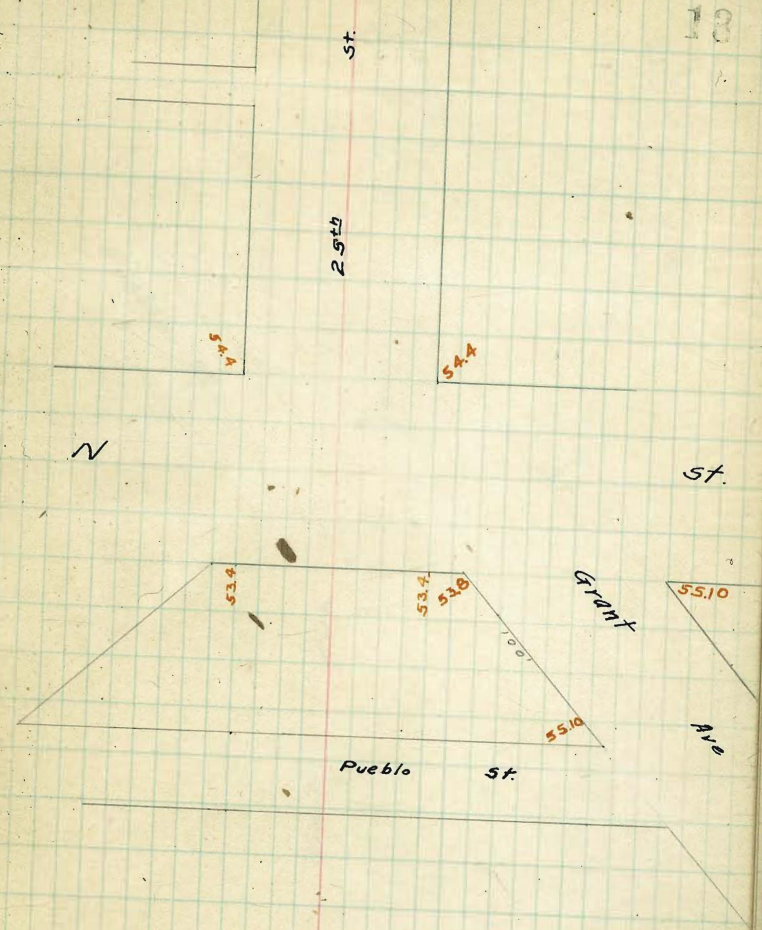 St.
25th
54.4
54.4
N
St.
53.4
53.4
53.8
Grant
55.10
100'
55.10
Ave
Pueblo St.